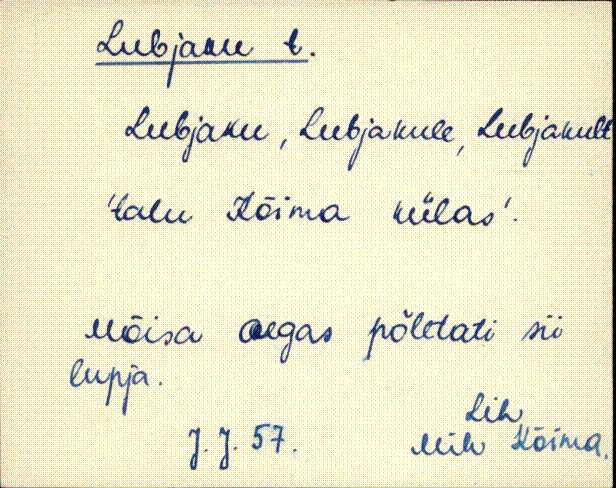 Lubjaku t.
Lubjaku, Lubjakule, Lubjakult
'talu Kõima külas'.
Mõisa aegas põletati sii
lupja.
Lih
J. J. 57. Mih Kõima.